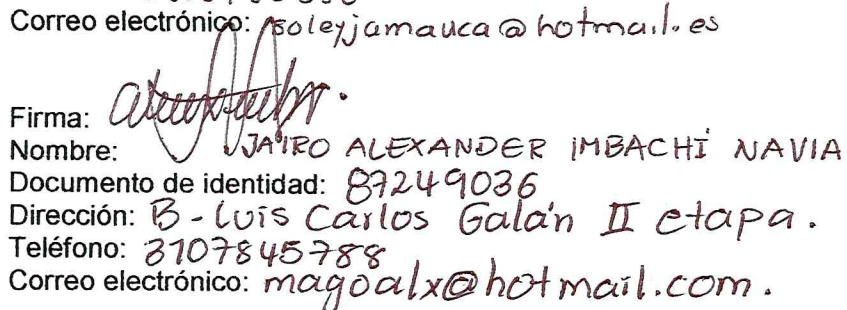 Correo electrónico: soleyjamauca@hotmail.es
Firma:
Nombre: JAIRO ALEXANDER IMBACHÍ NAVIA
Documento de identidad: 87249036
Dirección: B - Luis Carlos Galán II etapa.
Teléfono: 3107845788
Correo electrónico: magoalx@hotmail.com.